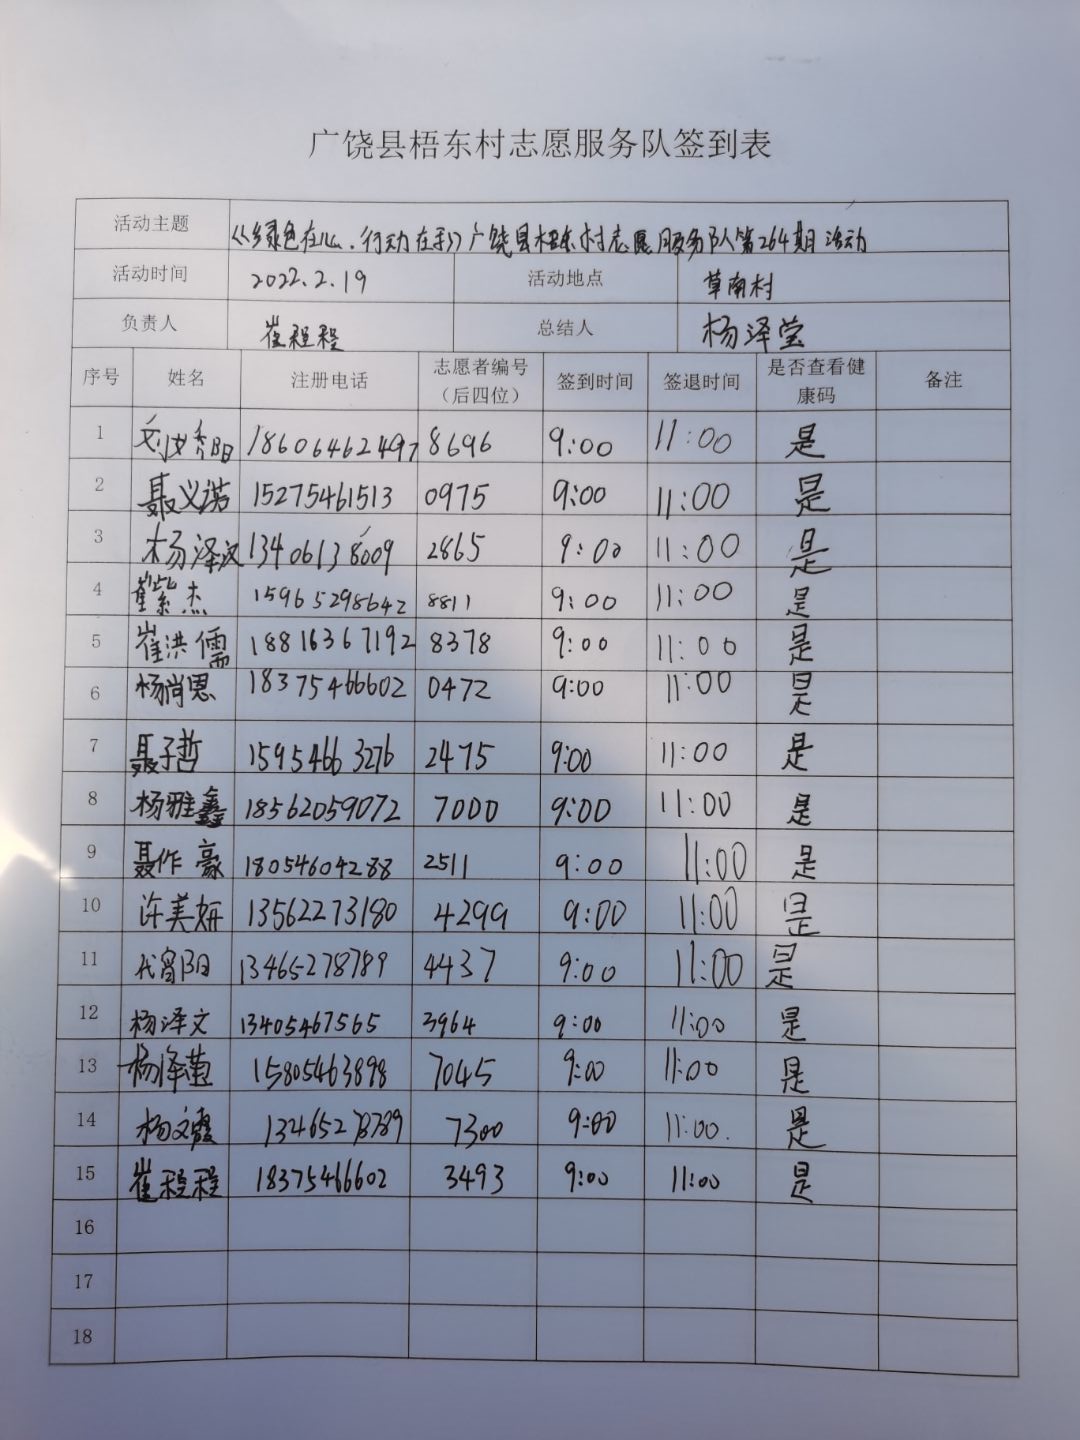 广饶县梧东村志愿服务队签到表
活动主题 《绿色在心.行动在手》广饶县梧东村志愿服务队第264期活动
活动时间 2022.2.19 活动地点 草南村
负责人 崔程程 总结人 杨泽莹
序号 姓名 注册电话 志愿者编号（后四位） 签到时间 签退时间 是否查看健康码 备注
1 18606462497 8696 9:00 11:00 是
2 聂义诺 15275461513 0975 9:00 11:00 是
3 杨泽汶 13406138009 2865 9:00 11:00 是
4 崔紫杰 15965298642 8811 9:00 11:00 是
5 崔洪儒 18816367192 8378 9:00 11:00 是
6 杨尚恩 18375466602 0472 9:00 11:00 是
7 聂子哲 15954663276 2475 9:00 11:00 是
8 杨雅鑫 18562059072 7000 9:00 11:00 是
9 聂作豪 18054604288 2511 9:00 11:00 是
10 许美妍 13562273180 4299 9:00 11:00 是
11 13465278789 4437 9:00 11:00 是
12 杨泽文 13405467565 3964 9:00 11:00 是
13 15805463898 7045 9:00 11:00 是
14 杨文霞 13465278789 7300 9:00 11:00. 是
15 崔程程 18375466602 3493 9:00 11:00 是
16
17
18